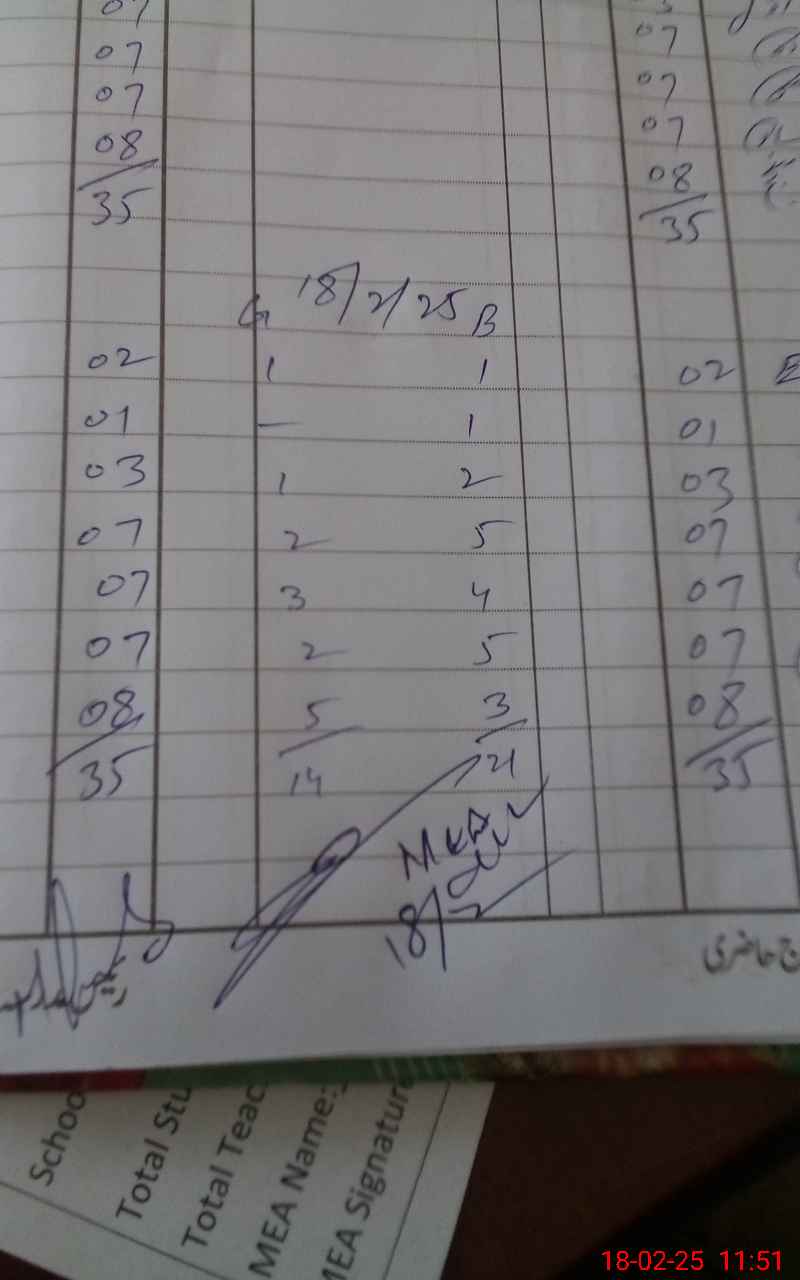 07 07
07 07
07 07
08 08
35 35
G 18/2/25 B
02 1 1 02
01 — 1 01
03 1 2 03
07 2 5 07
07 3 4 07
07 2 5 07
08 5 3 08
35 14 21 35
MEA
18/2
حاضری
Schoo
Total Stu
Total Teac
MEA Name:
MEA Signatur
18-02-25 11:51